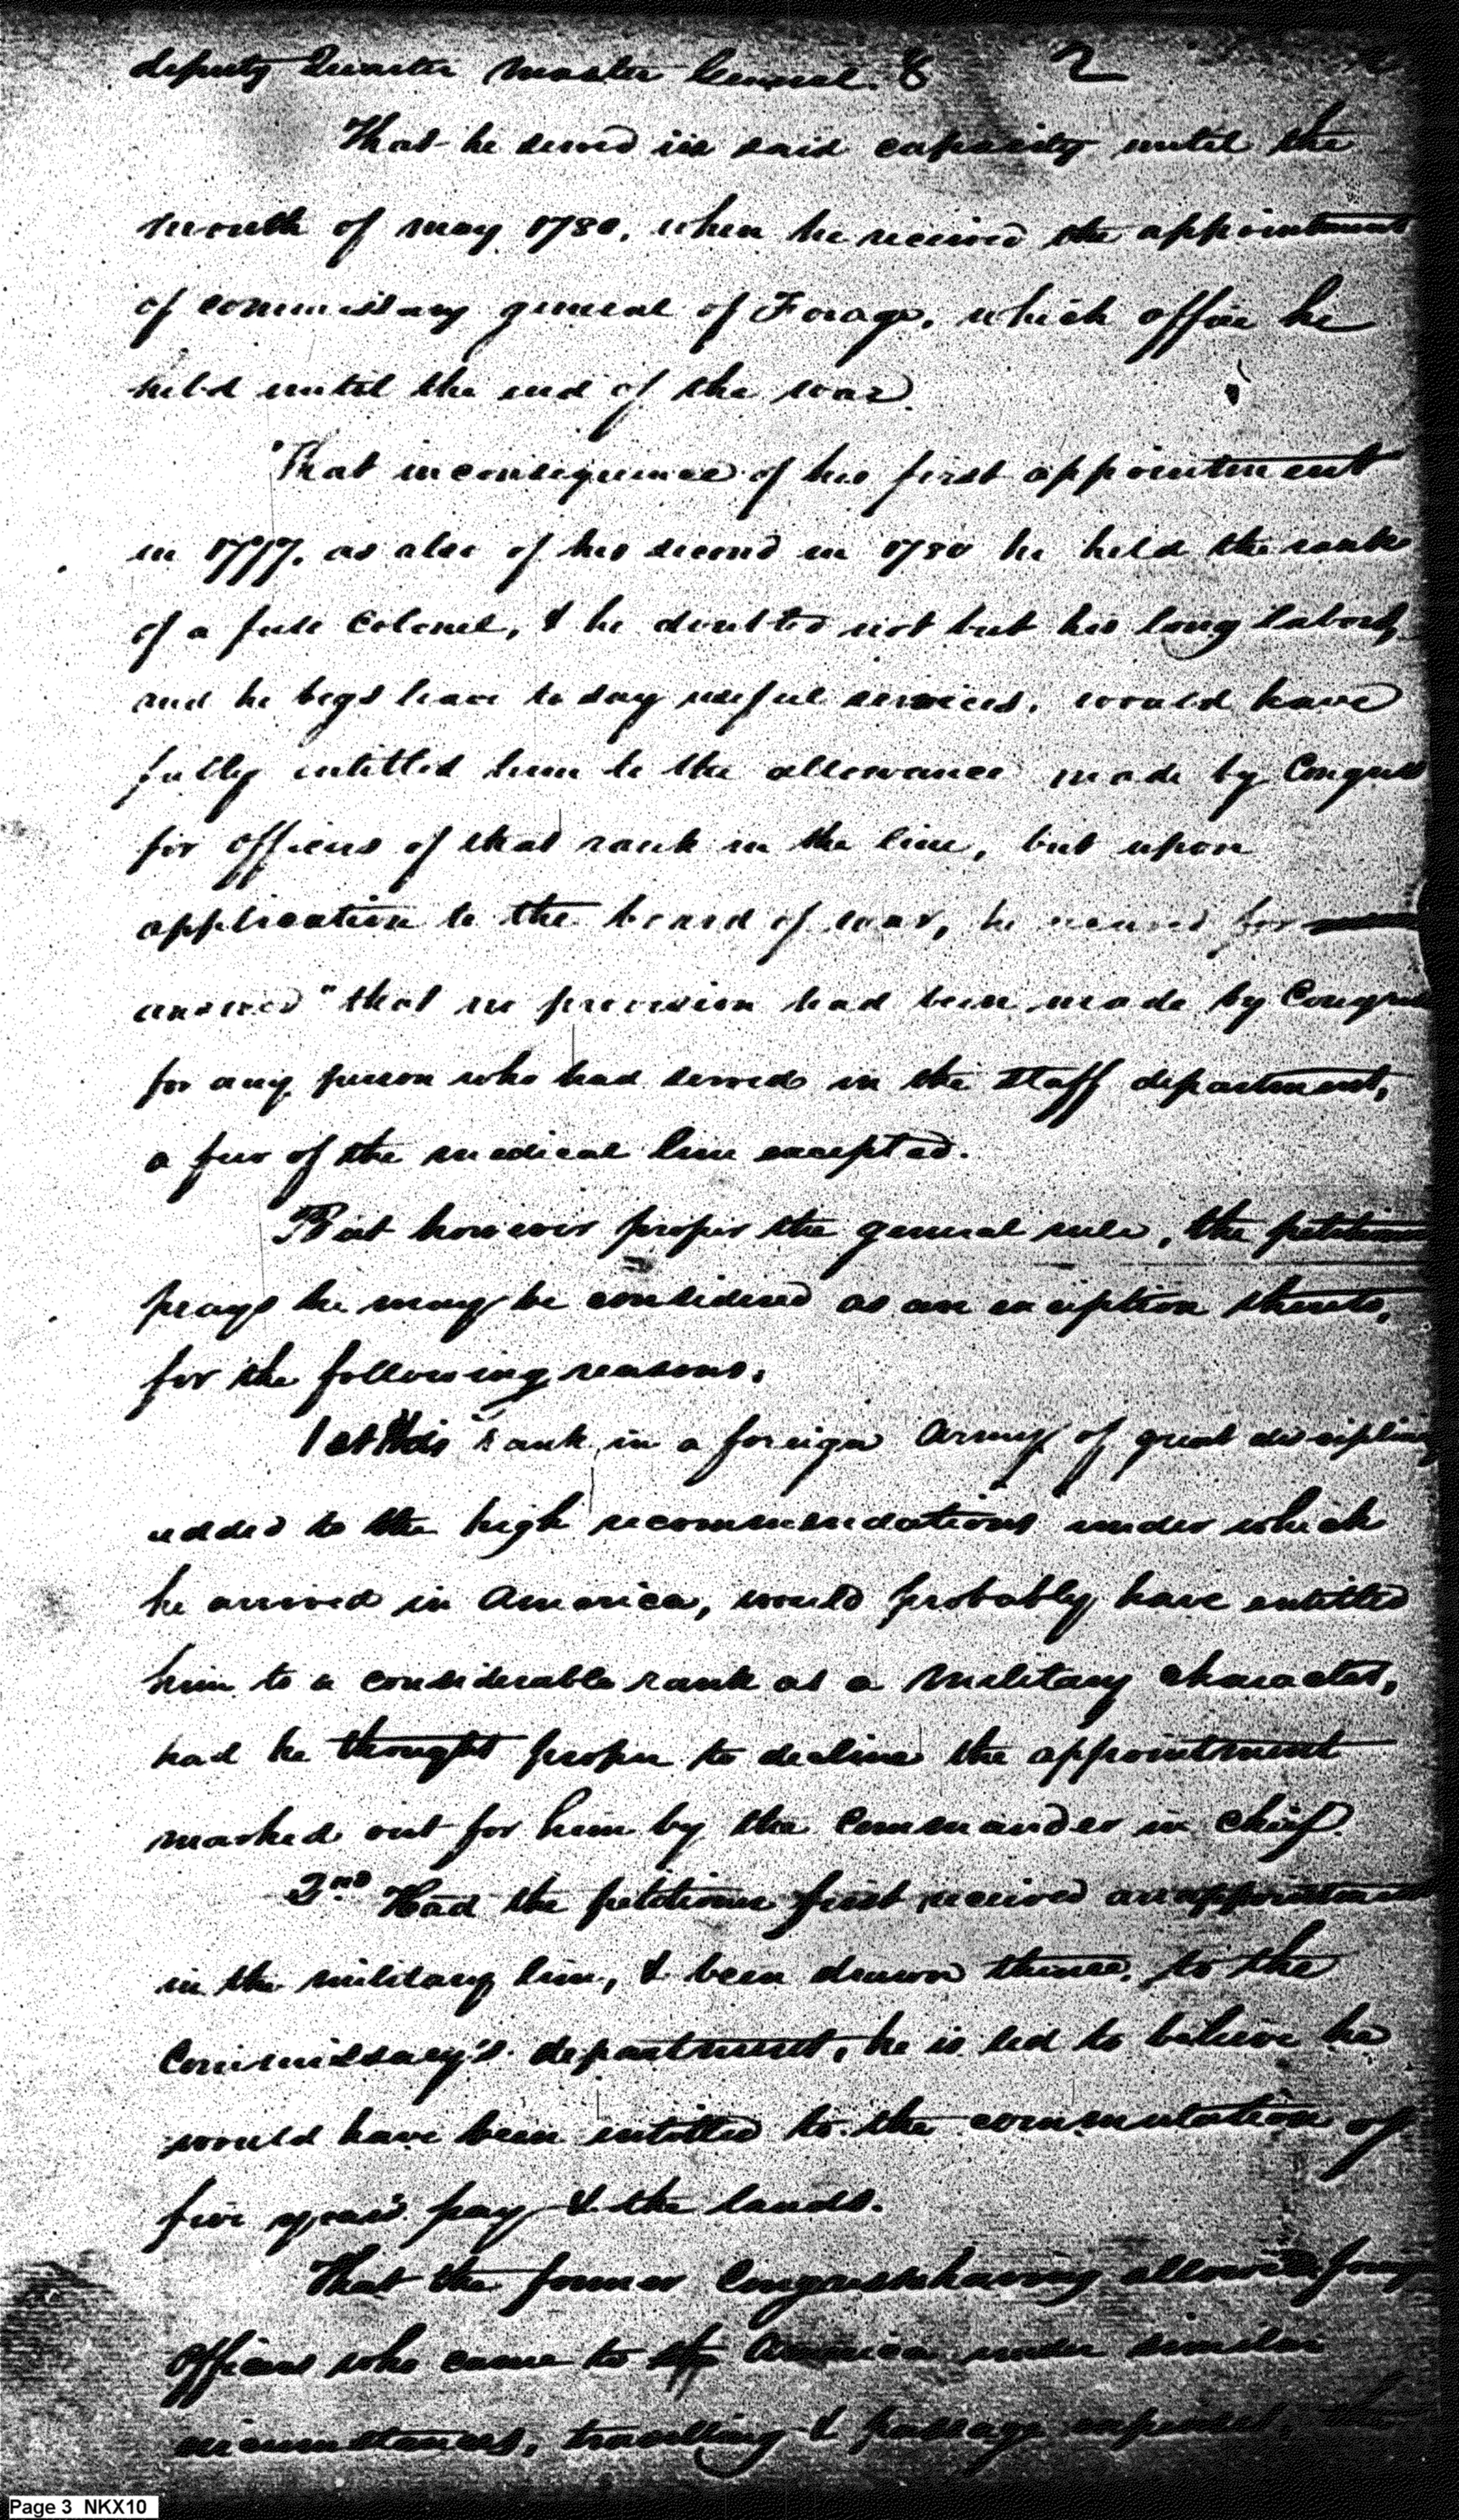 deputy Quarter Master General. & 2
That he served in said capacity until the
month of may 1780. when he received the appointment
of commissary general of Forage. which office he
held until the end of the war.
That in consequence of his first appointment
in 1777. as also of his second in 1780 he held the rank
of a full Colonel, & he doubted not but his long labors,
and he begs leave to say useful services, would have
fully intitled him to the allowance made by Congress
for officers of that rank in the line, but upon
application to the board of war, he received for
answer "that no provision had been made by Congress
for any person who had served in the staff department,
a few of the medical line excepted.
But however proper the general rule, the petitioner
prays he may be considered as an exception thereto,
for the following reasons.
1st His rank in a foreign Army of great discipline
added to the high recommendations under which
he arrived in America, would probably have entitled
him to a considerable rank as a Military character,
had he thought proper to decline the appointment
marked out for him by the Commander in Chief.
2nd Had the petitioner first received an appointment
in the military line, & been drawn thence, to the
Commissary's department, he is led to believe he
would have been intitled to the commutation of
five year's pay & the lands.
That the former Congress having allowed
Officers who came to America under similar
circumstances, travelling & passage expenses,
Page 3 NKX10